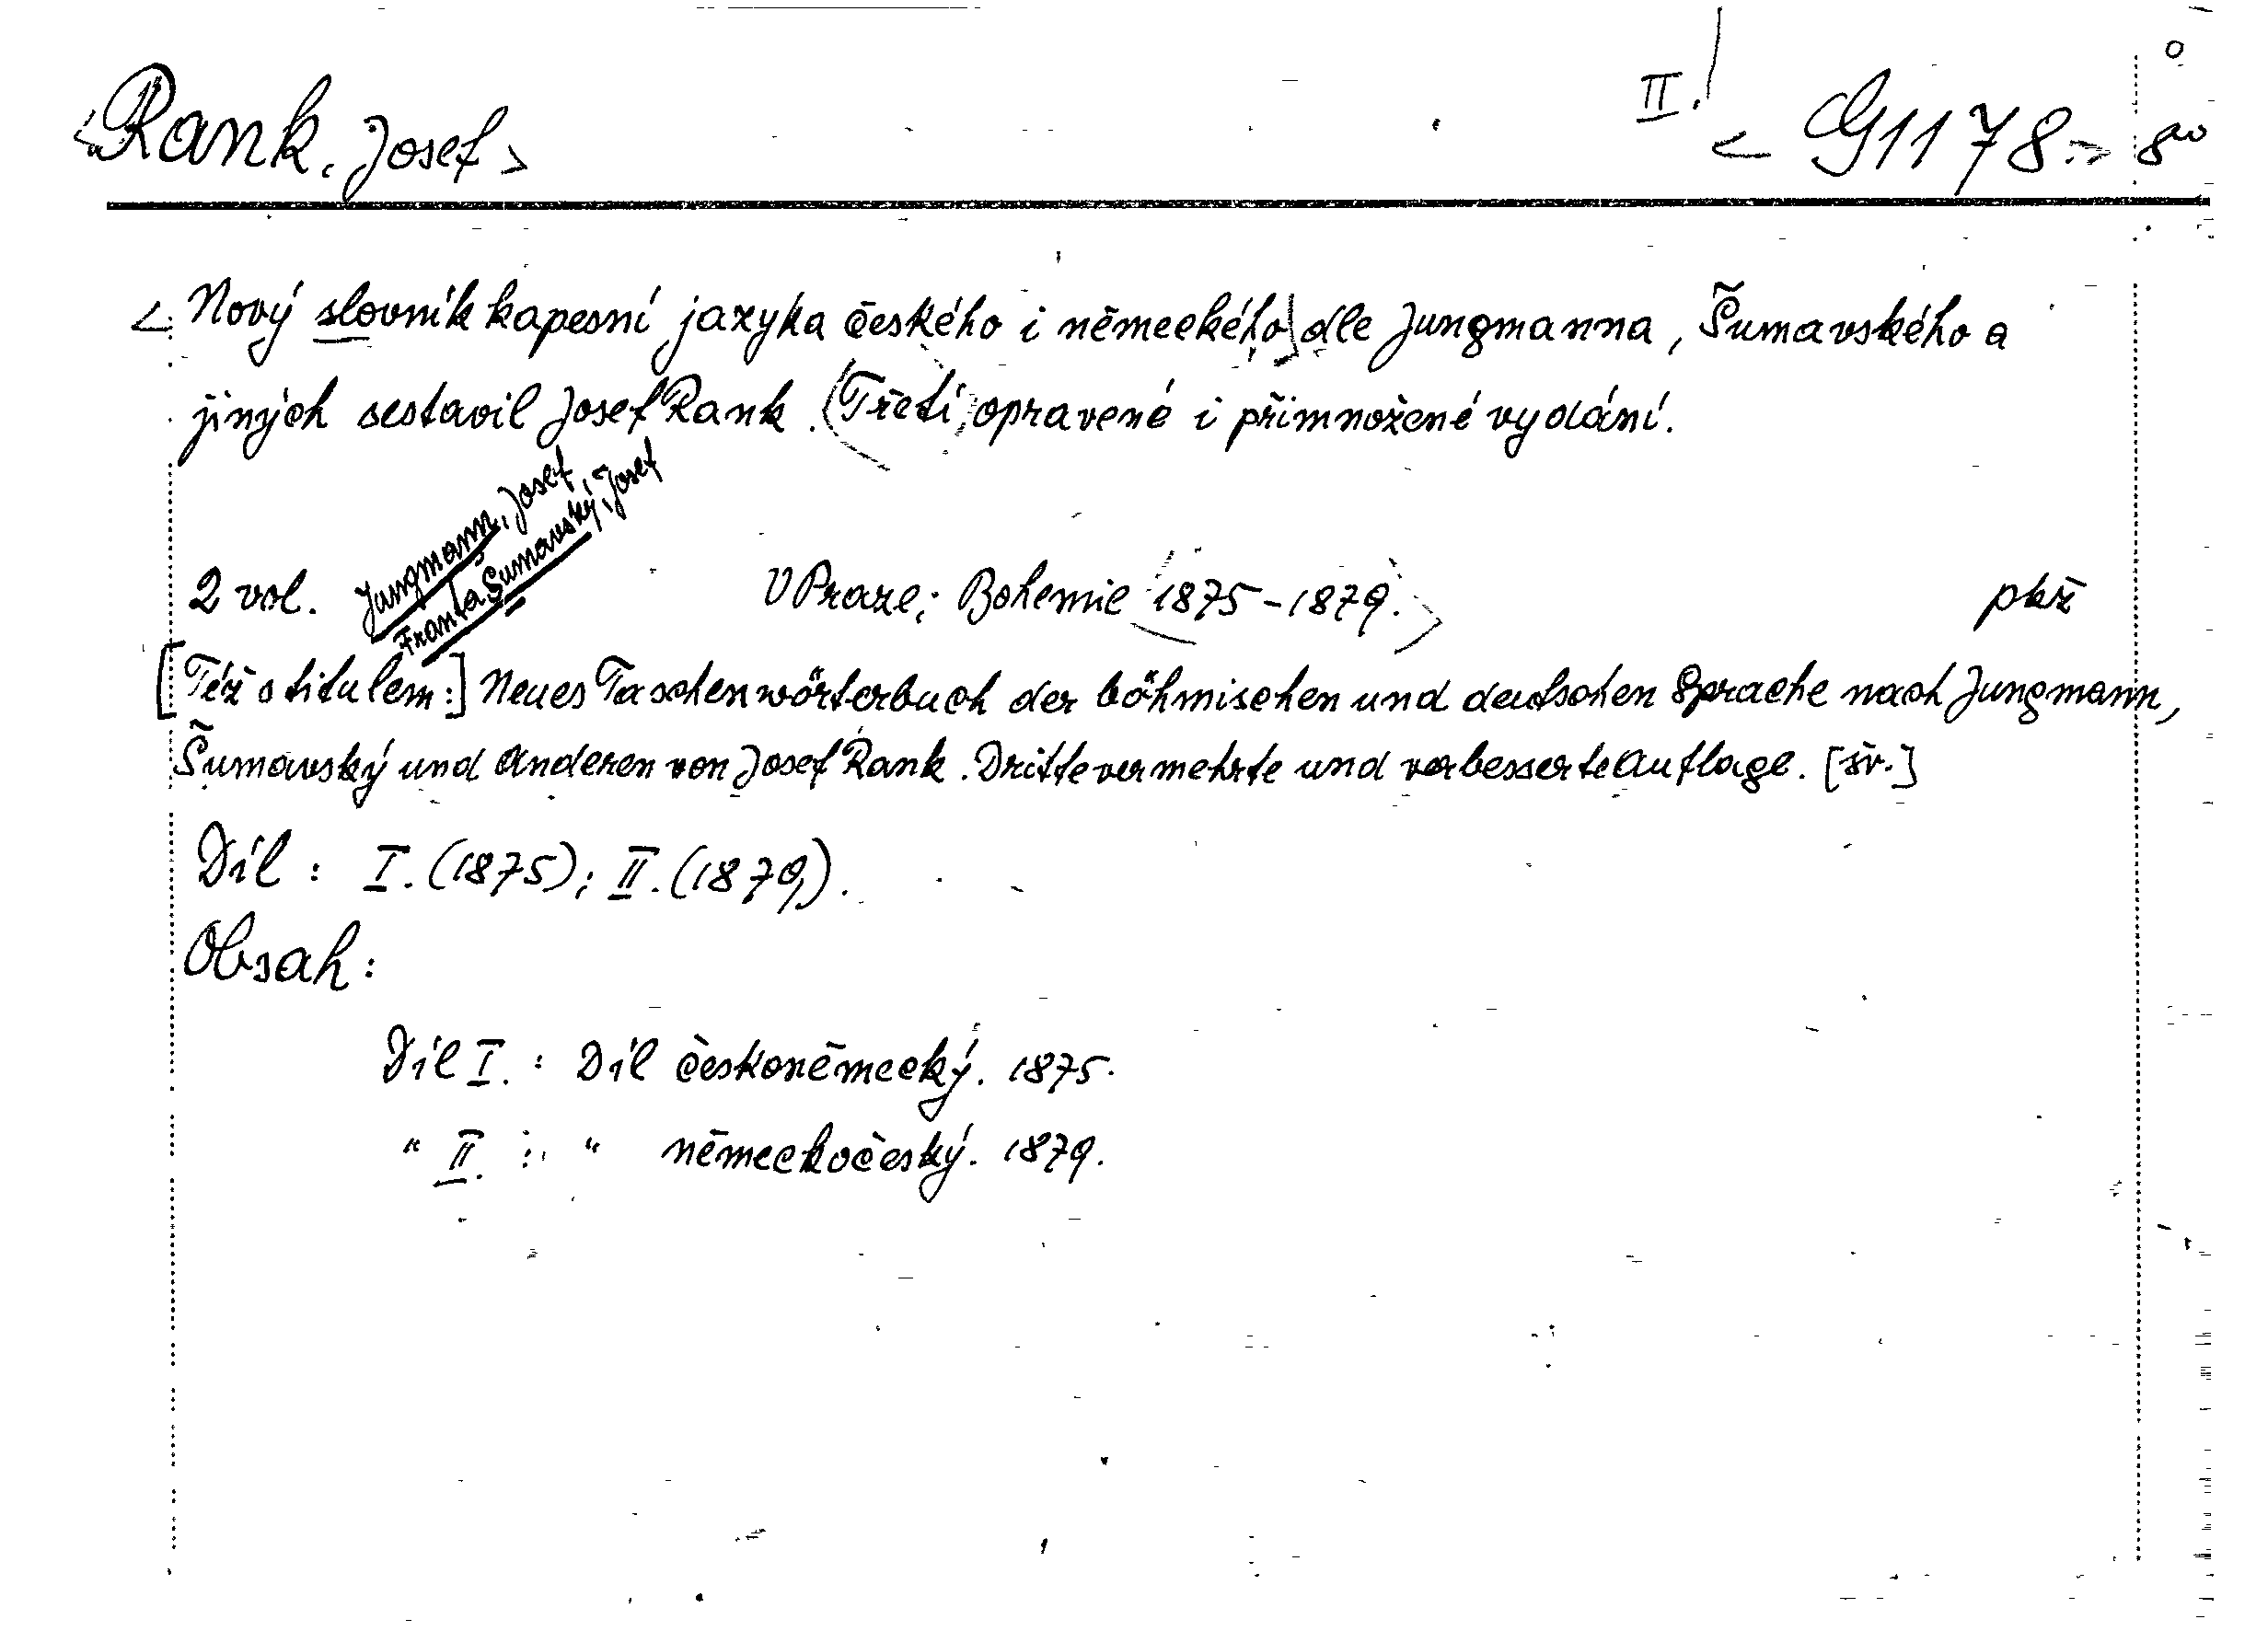 <Rank, Josef> II. <G1178.> 8°
<Nový slovník kapesní jazyka českého i německého] dle Jungmanna, Šumavského a
jiných sestavil Josef Rank. (Třetí,) opravené i přimnožené vydání.
Jungmann, Josef,
Franta Šumavský, Josef
2 vol. V Praze; Bohemie (1875-1879.) pkž
[Též s titulem:] Neues Taschenwörterbuch der böhmischen und deutschen Sprache nach Jungmann,
Šumavský und Anderen von Josef Rank. Dritte vermehrte und verbesserte Auflage. [šv.]
Díl: I. (1875); II. (1879).
Obsah:
Díl I.: Díl českoněmecký. 1875.
" II.: " německočeský. 1879.